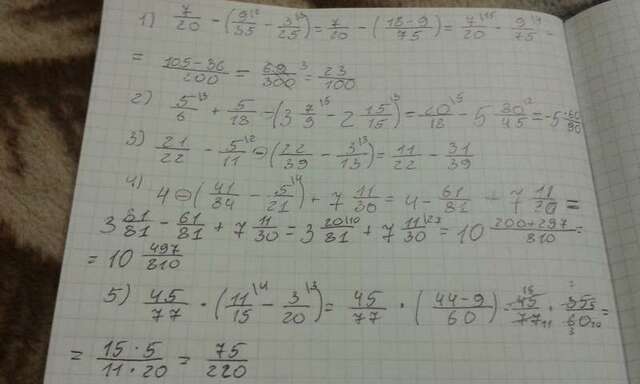 1) 7/20 - (9/35 - 3/25) = 7/20 - (18-9)/75 = 7/20 - 9/75 =
= (105-36)/200 = 69/300 = 23/100
2) 5/6 + 5/18 - (3 7/9 - 2 15/15) = 20/18 - 5 30/45 = -5
3) 21/22 - 5/11 - (22/39 - 3/13) = 11/22 - 31/39
4) 4 - (41/84 - 5/21) + 7 11/30 = 4 - 61/81 + 7 11/30 =
3 81/81 - 61/81 + 7 11/30 = 3 20/81 + 7 11/30 = 10 (200+297)/810 =
= 10 497/810
5) 45/77 · (11/15 - 3/20) = 45/77 · ((44-9)/60) 45/77 · 35/60 =
= (15·5)/(11·20) = 75/220